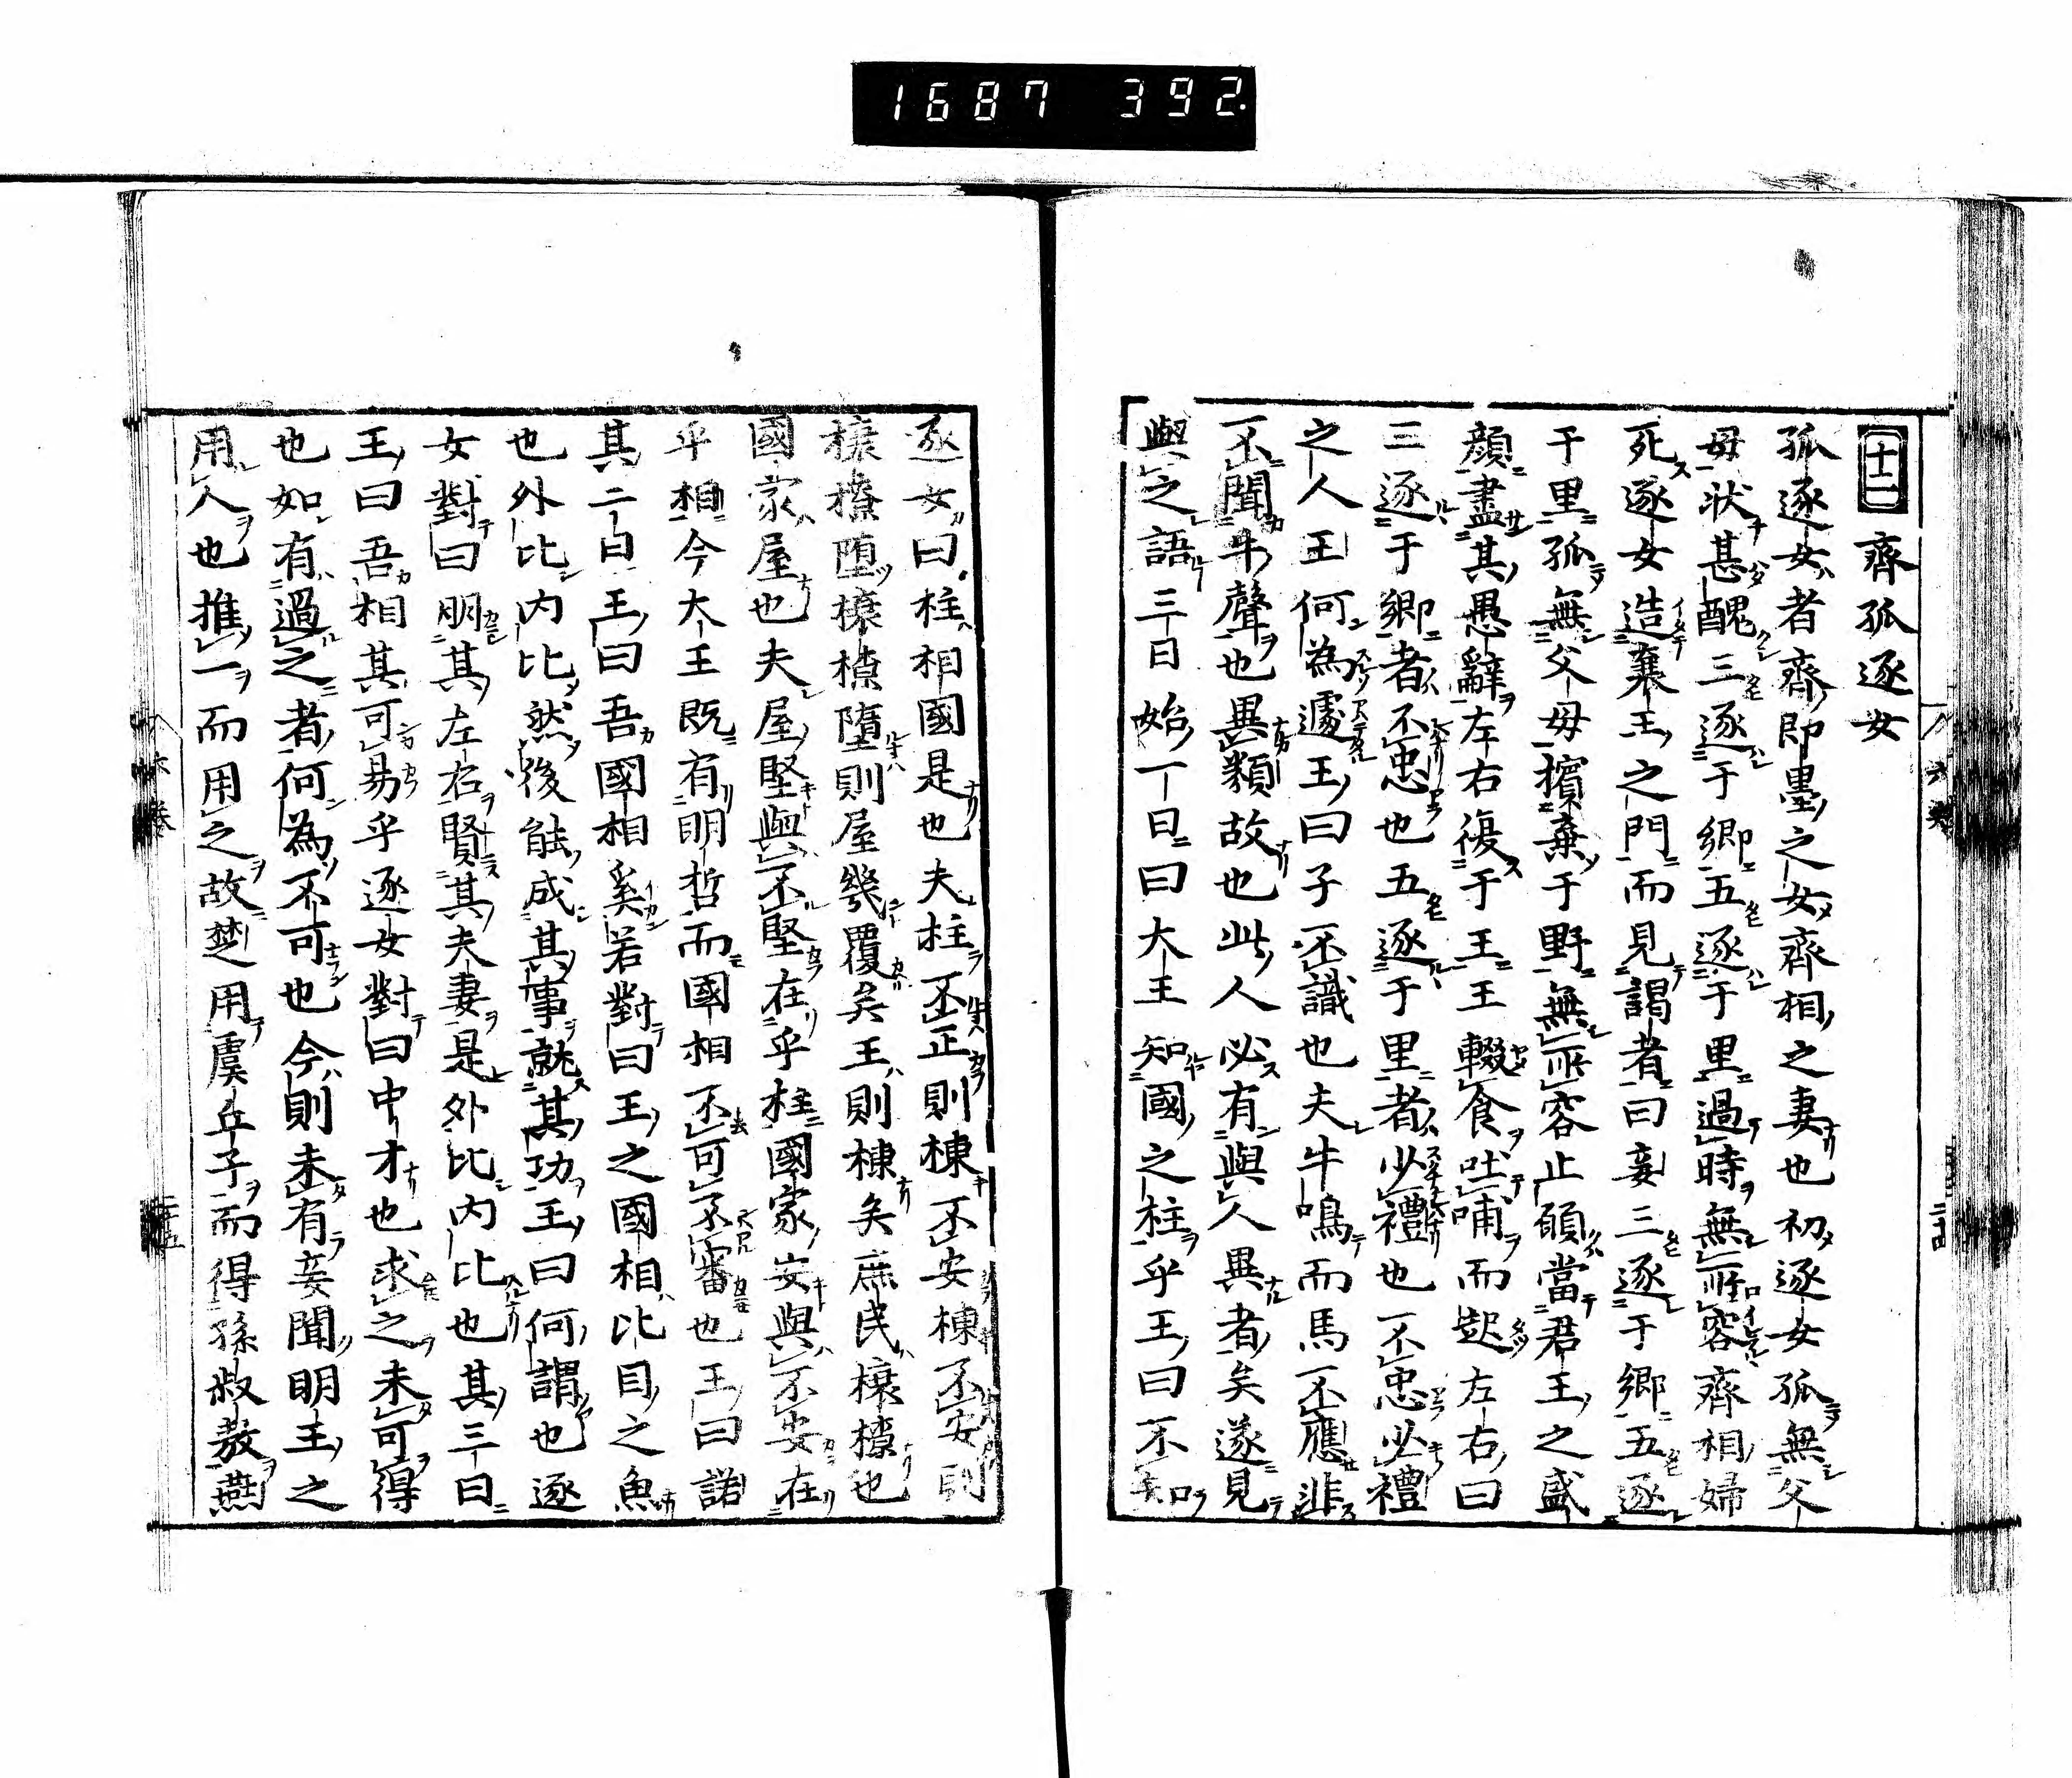 1687 392
十二 齊孤逐女
孤逐女者齊即墨之女齊相之妻也初逐女孤無父
母状甚醜三逐于鄉五逐于里過時無所容齊相婦
死逐女造襄王之門而見謁者曰妾三逐于鄉五逐
于里孤無父母擯棄于野無所容止願當君王之盛
顔盡其愚辭左右復于王王輟食吐哺而起左右曰
三逐于鄉者不忠也五逐于里者少禮也不忠少禮
之人王何為遽王曰子不識也夫牛鳴而馬不應非
不聞牛聲也異類故也此人必有與人異者矣遂見
與之語三日始一日曰大王知國之柱乎王曰不知
逐女曰柱相國是也夫柱不正則棟不安棟不安則
榱橑墮榱橑墮則屋幾覆矣王則棟矣庶民榱橑也
國家屋也夫屋堅與不堅在乎柱國家安與不安在
乎相今大王既有明哲而國相不可不審也王曰諾
其二日王曰吾國相奚若對曰王之國相比目之魚
也外比内比然後能成其事就其功王曰何謂也逐
女對曰明其左右賢其夫妻是外比内比也其三日
王曰吾相其可易乎逐女對曰中才也求之未可得
也如有過之者何為不可也今則未有妾聞明王之
用人也推一而用之故楚用虞丘子而得孫叔敖燕